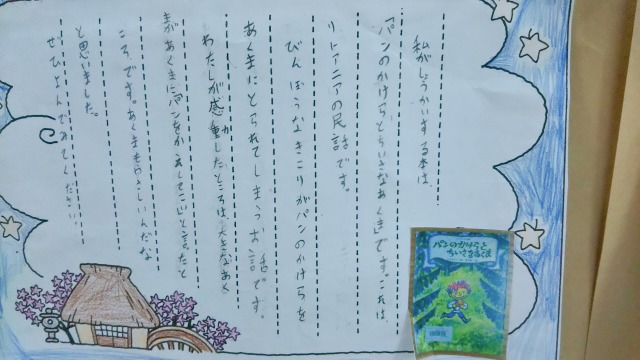 私がしょうかいする本は、
「パンのかけらとちいさなあくま」です。これは、
リトアニアの民話です。
びんぼうなきこりがパンのかけらを
あくまにとられてしまうお話です。
わたしが感動したところは、大きなあく
まがあくまにパンをかえしてこいと言ったと
ころです。あくまもやさしいんだな
と思いました。
ぜひよんでみてください
パンのかけらと
ちいさなあくま